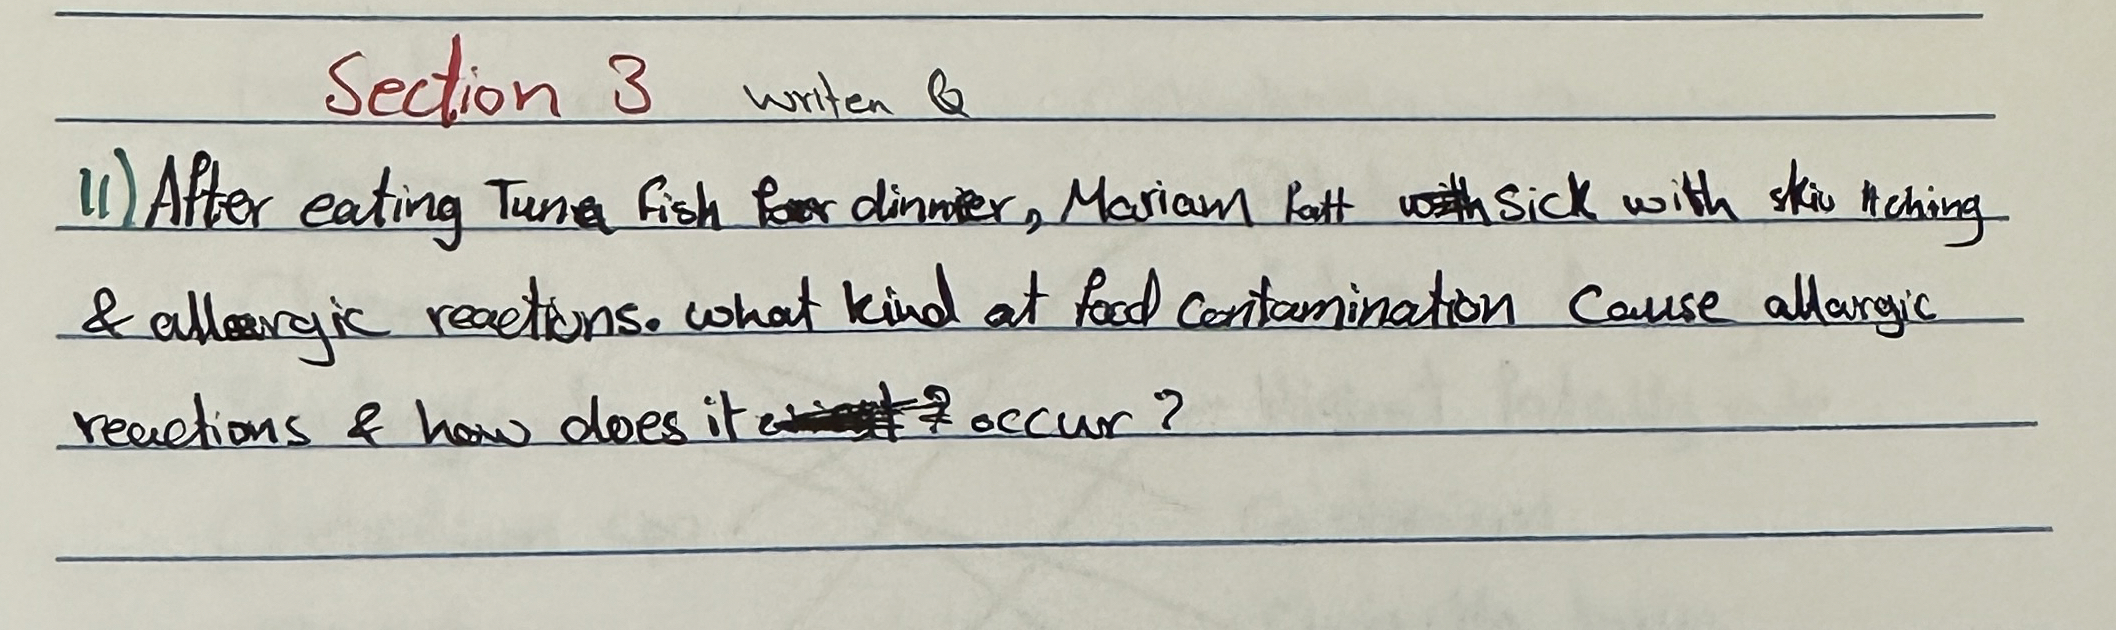 Section 3 writen Q
11) After eating Tuna fish for dinner, Mariam fatt sick with skin itching
& allergic reactions. what kind at food contamination cause allargic
reactions & how does it occur?